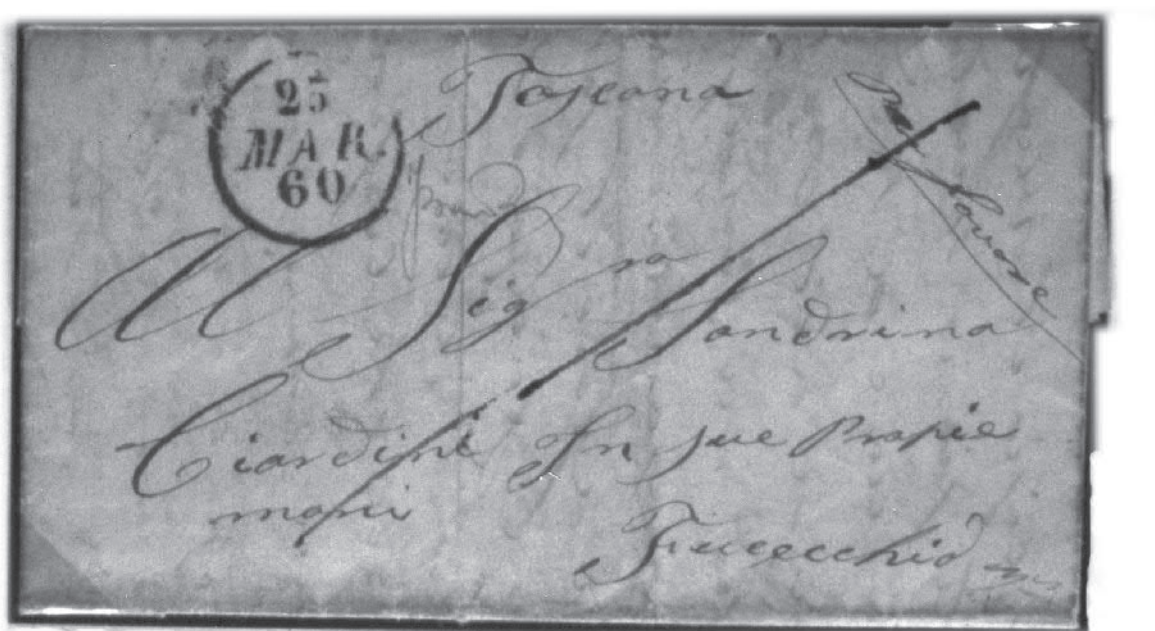 25
MAR.
60
Toscana
Per Livorno
Al Sigra Sandrina
Ciardini In sue Propie
mani
Fucecchio